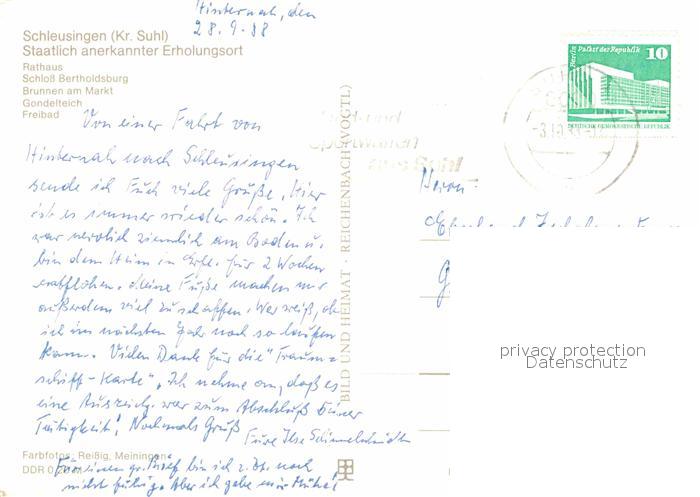 Hinternah, den
28.9.88
Schleusingen (Kr. Suhl)
Staatlich anerkannter Erholungsort
Rathaus
Schloß Bertholdsburg
Brunnen am Markt
Gondelteich
Freibad
Von einer Fahrt von
Hinternah nach Schleusingen
sende ich Euch viele Grüße. Hier
ist es immer wieder schön. Ich
war nervlich ziemlich am Boden u.
bin dem Heim in für 2 Wochen
entflohen. Meine Füße machen mir
außerdem viel zu schaffen. Wer weiß, ob
ich im nächsten Jahr noch so laufen
kann. Vielen Dank für die "Traum=
schiff-Karte". Ich nehme an, daß es
eine Auszeichg. war zum Abschluß Eurer
Tätigkeit! Nochmals Gruß
Eure Ilse
Farbfotos: Reißig, Meiningen
DDR 0,20 M
Für einen gr. Brief bin ich z. Zt. noch
nicht fähig. Aber ich gebe mir Mühe!
BILD UND HEIMAT · REICHENBACH (VOGTL)
Berlin Palast der Republik
10
DEUTSCHE DEMOKRATISCHE REPUBLIK
und
Sportwaffen
aus Suhl
Herrn
privacy protection
Datenschutz